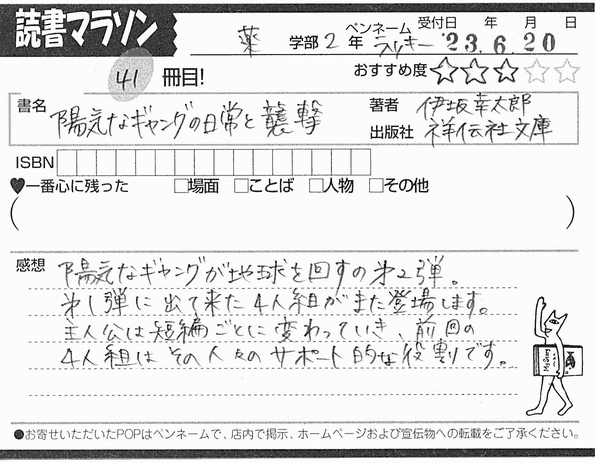 読書マラソン
薬 学部 2 年 ペンネーム ラッキー 受付日 年 月 日
'23.6.20
41 冊目! おすすめ度 ☆☆☆☆☆
書名 陽気なギャングの日常と襲撃
著者 伊坂幸太郎
出版社 祥伝社文庫
ISBN
♥一番心に残った □場面 □ことば □人物 □その他
( )
感想 陽気なギャングが地球を回すの第2弾。
第1弾に出て来た4人組がまた登場します。
主人公は短編ごとに変わっていき、前回の
4人組はその人々のサポート的な役割です。
●お寄せいただいたPOPはペンネームで、店内で掲示、ホームページおよび宣伝物への転載をご了承ください。